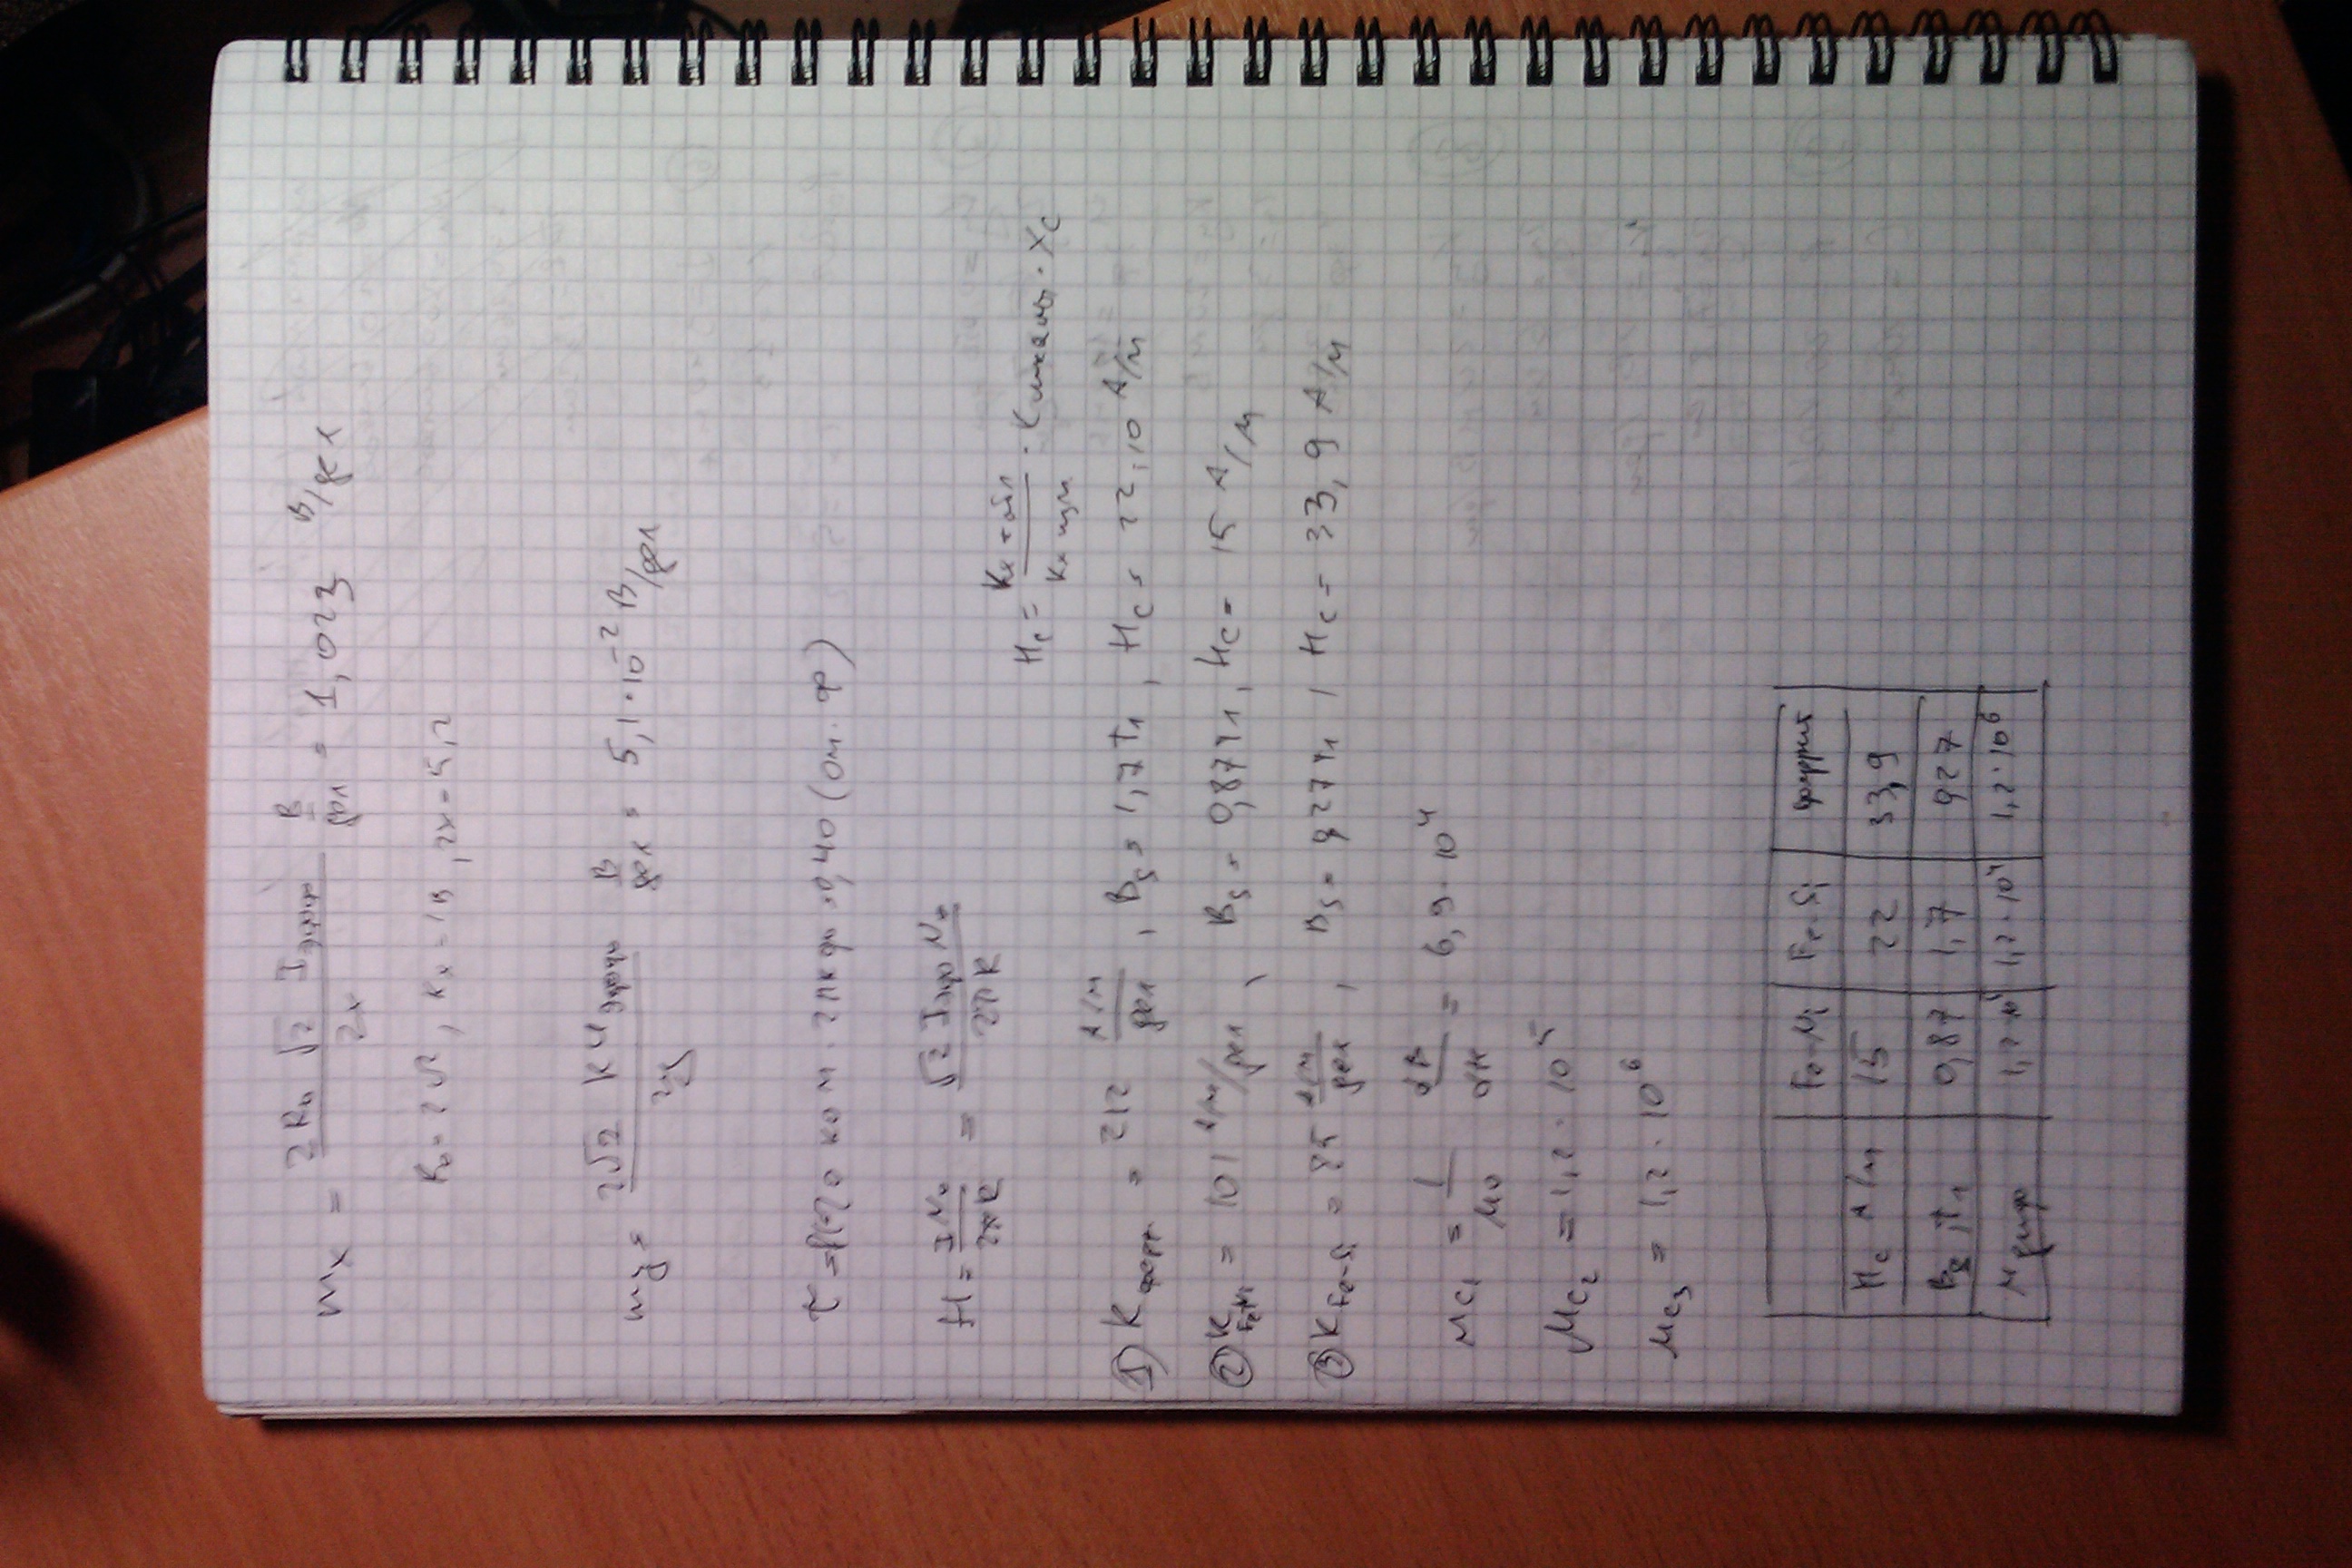 m_x = 2R_0 √2 I_эфф / 2x В/дел = 1,023 В/дел
R_0 = 2 Ω, K_x = 1В, 2x = 5,2
m_y = 2√2 K U_эфф / 2y В/дел = 5,1·10^-2 В/дел
τ = RC = 20 ком · 20 мкф = 0,40 (ом·ф)
H = I N_0 / 2πR = √2 I_эфф N_0 / 2πR
H_c = K_x табл / K_x изм · K шкалы · X_c
1) K_ферр = 212 А/м / дел, B_s = 1,7 Тл, H_c = 22,10 А/м
2) K_FeNi = 101 А/м/дел, B_s = 0,87 Тл, H_c = 15 А/м
3) K_Fe-Si = 85 А/м / дел, B_s = 0,27 Тл, H_c = 33,9 А/м
μ_c1 = 1/μ_0 dB/dH = 6,9·10^4
μ_c2 = 1,2·10^5
μ_c3 = 1,2·10^6
Fe-Ni Fe-Si феррит
H_c А/м 15 22 33,9
B_s, Тл 0,87 1,7 0,27
μ дифф 1,2·10^4 1,2·10^6